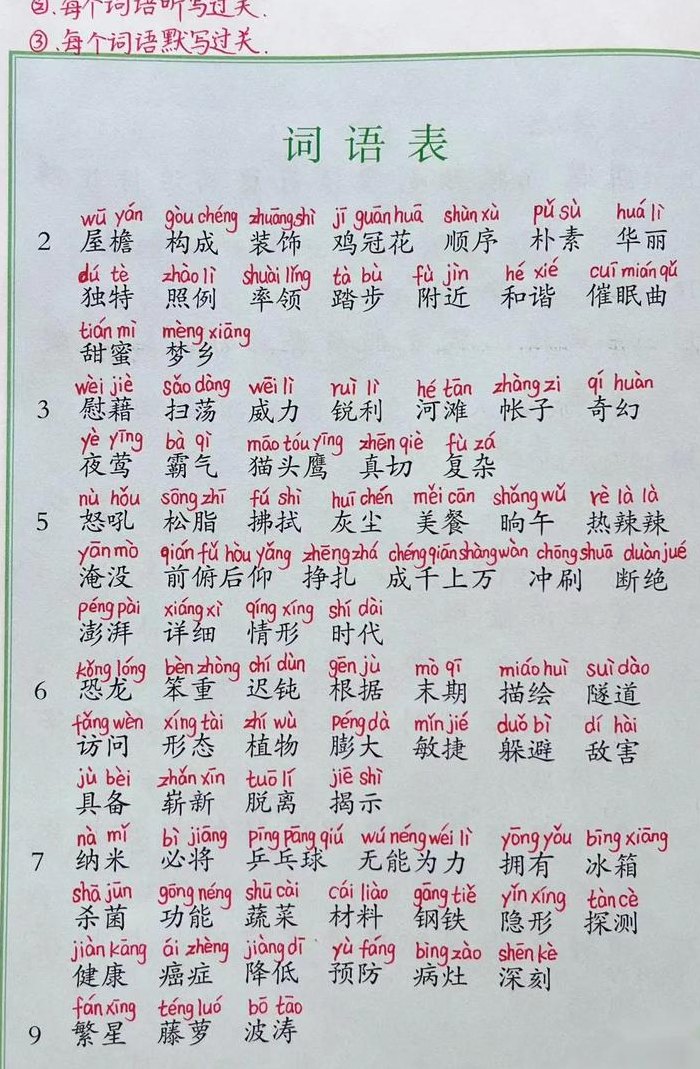 ②.每个词语听写过关.
③.每个词语默写过关.
词语表
wū yán gòu chéng zhuāng shì jī guān huā shùn xù pǔ sù huá lì
2 屋檐 构成 装饰 鸡冠花 顺序 朴素 华丽
dú tè zhào lì shuài lǐng tà bù fù jìn hé xié cuī mián qǔ
独特 照例 率领 踏步 附近 和谐 催眠曲
tián mì mèng xiāng
甜蜜 梦乡
wèi jiè sǎo dàng wēi lì ruì lì hé tān zhàng zi qí huàn
3 慰藉 扫荡 威力 锐利 河滩 帐子 奇幻
yè yīng bà qì māo tóu yīng zhēn qiè fù zá
夜莺 霸气 猫头鹰 真切 复杂
nù hǒu sōng zhī fú shì huī chén měi cān shǎng wǔ rè là là
5 怒吼 松脂 拂拭 灰尘 美餐 晌午 热辣辣
yān mò qián fǔ hòu yǎng zhēng zhá chéng qiān shàng wàn chōng shuā duàn jué
淹没 前俯后仰 挣扎 成千上万 冲刷 断绝
péng pài xiáng xì qíng xíng shí dài
澎湃 详细 情形 时代
kǒng lóng bèn zhòng chí dùn gēn jù mò qī miáo huì suì dào
6 恐龙 笨重 迟钝 根据 末期 描绘 隧道
fǎng wèn xíng tài zhí wù péng dà mǐn jié duǒ bì dí hài
访问 形态 植物 膨大 敏捷 躲避 敌害
jù bèi zhǎn xīn tuō lí jiē shì
具备 崭新 脱离 揭示
nà mǐ bì jiāng pīng pāng qiú wú néng wéi lì yōng yǒu bīng xiāng
7 纳米 必将 乒乓球 无能为力 拥有 冰箱
shā jūn gōng néng shū cài cái liào gāng tiě yǐn xíng tàn cè
杀菌 功能 蔬菜 材料 钢铁 隐形 探测
jiàn kāng ái zhèng jiàng dī yù fáng bìng zào shēn kè
健康 癌症 降低 预防 病灶 深刻
fán xīng téng luó bō tāo
9 繁星 藤萝 波涛